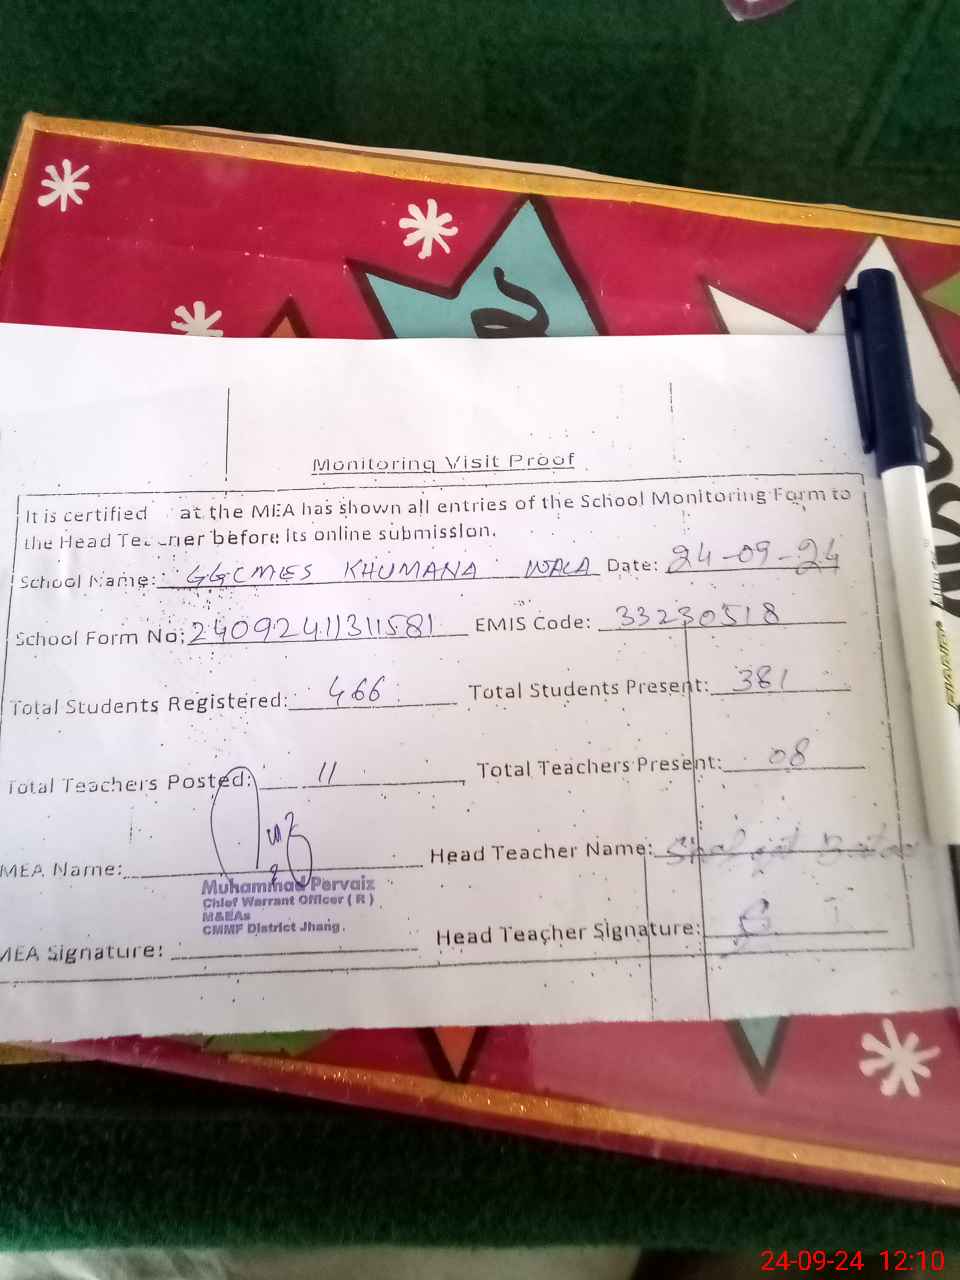 Monitoring Visit Proof
It is certified at the MEA has shown all entries of the School Monitoring Form to
the Head Teacher before its online submission.
School Name: GGCMES KHUMANA WALA Date: 24-09-24
School Form No: 24092411311581 EMIS Code: 33230518
Total Students Registered: 466 Total Students Present: 381
Total Teachers Posted: 11 Total Teachers Present: 08
MEA Name: Head Teacher Name:
Muhammad Pervaiz
Chief Warrant Officer ( R )
M&EAs
CMMF District Jhang.
MEA Signature: Head Teacher Signature:
24-09-24 12:10